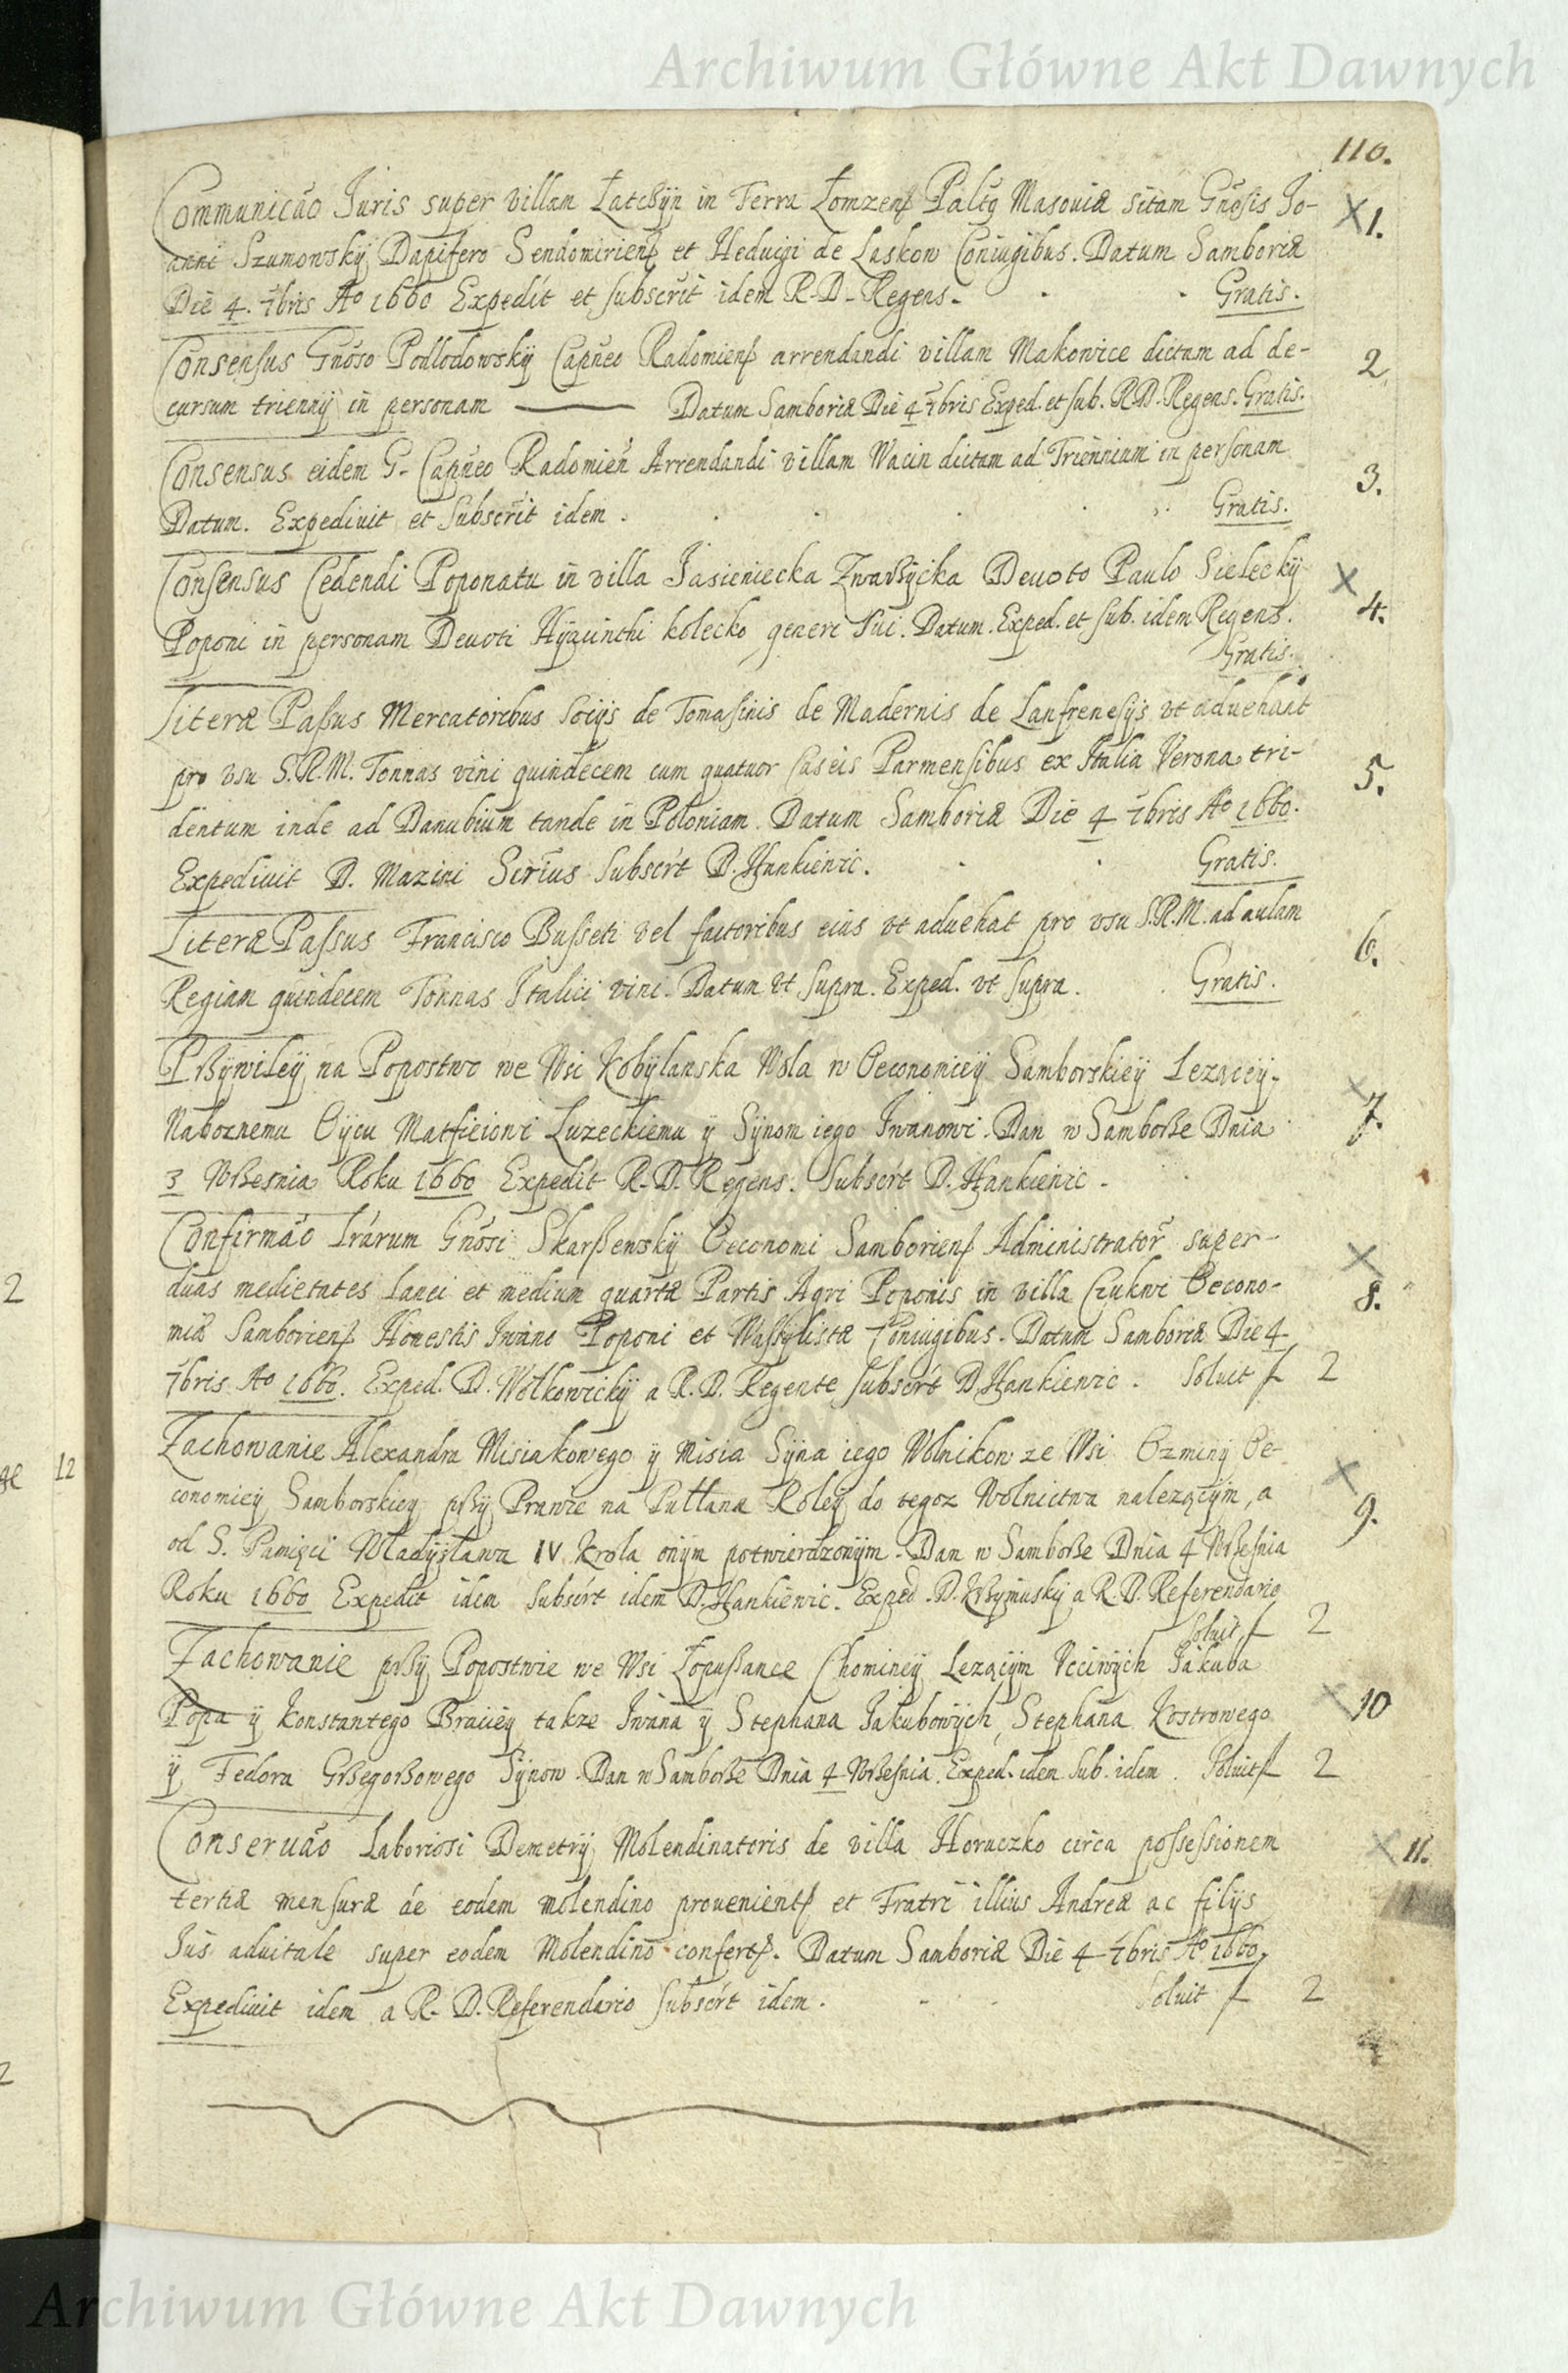 Archiwum Główne Akt Dawnych
110.
Communicão Juris super villam Łatcßÿn in Terra Łomzenß Paltq Masouiæ sitam Gnõsis Jo- X 1.
anni Szumowskÿ Dapifero Sendomirienß et Heduigi de Laskow Coniugibus. Datum Samboriæ
Die 4. 7bris Ao 1660 Expedit et subscrit idem R. D. Regens. Gratis.
Consensus Gnõso Podlodowskÿ Capneo Radomienß arrendandi villam Makowice dictam ad de- 2
cursum triennÿ in personam —— Datum Samboriæ Die 4 7bris Exped. et sub. R.D. Regens. Gratis.
Consensus eidem G. Capneo Radomien Arrendandi villam Wacin dictam ad Triennium in personam 3.
Datum. Expediuit et Subscrit idem. Gratis.
Consensus Cedendi Poponatu in villa Jasieniecka Zwaßÿcka Deuoto Paulo Sieleckÿ X
Poponi in personam Deuoti Hÿacinthi kolecko generi sui. Datum. Exped. et sub. idem Regens. 4.
Gratis.
Literæ Passus Mercatoribus Socÿs de Tomasinis de Madernis de Lanfrenesÿs vt aduehant
pro vsu S.R.M. Tonnas vini quindecem cum quatuor Caseis Parmensibus ex Italia Verona tri- 5.
dentum inde ad Danubium tande in Poloniam. Datum Samboriæ Die 4 7bris Ao 1660.
Expediuit D. Mazini Serius Subscrt D. Hankiewic. Gratis.
Literæ Passus Francisco Busseti vel factoribus eius vt aduehat pro vsu S.R.M. ad aulam 6.
Regiam quindecem Tonnas Italici vini. Datum vt supra. Exped. vt supra. Gratis.
Pßÿwileÿ na Popostwo we Wsi Kobÿlanska Wola w Oeconomieÿ Samborskieÿ Lezącÿ. X
Naboznemu Oÿcu Matfieiowi Luzeckiemu ÿ Sÿnom iego Iwanowi. Dan w Samboße Dnia 7.
3 Wßesnia Roku 1660 Expedit R. D. Regens. Subscrt D. Hankiewic.
Confirmão Lrarum Gnõsi Skarßewskÿ Oeconomi Samborienß Administrator super- X
duas medietates Lanei et medium quartæ Partis Agri Poponis in villa Czukwi Oecono- 8.
miæ Samborienß Honestis Iwano Poponi et Wassÿlistæ Coniugibus. Datum Samboriæ Die 4
7bris Ao 1660. Exped. D. Wolkowickÿ a R. D. Regente subscrt D. Hankiewic. Soluit f 2
Zachowanie Alexandra Misiakowego ÿ Misia Sÿna iego Wolnikow ze Wsi Ozminÿ Oe- X
conomieÿ Samborskieÿ pßÿ Prawie na Pułłana Roleÿ do tegoz Wolnictwa nalezącÿm, a 9.
od S. Pamięci Władÿsława IV Krola onÿm potwierdzonÿm. Dan w Samboße Dnia 4 Wßesnia
Roku 1660 Expedit idem Subscrt idem D. Hankiewic. Exped. D. Kßÿmuskÿ a R. D. Referendario
Soluit f 2
Zachowanie pßÿ Popostwie we Wsi Łopußance Chomineÿ Lezącÿm Vcciwÿch Jakuba
Popa ÿ Konstantego Bracieÿ takze Iwana ÿ Stephana Jakubowÿch, Stephana Kostrowego X 10
ÿ Fedora Grßegorßowego Sÿnow. Dan w Samboße Dnia 4 Wßesnia. Exped. idem Sub. idem. Soluit f 2
Conseruão Laboriosi Demetrÿ Molendinatoris de villa Horuczko circa possessionem X 11.
tertiæ mensuræ de eodem molendino prouenientß et Fratri illius Andreæ ac filÿs
Jus aduitale super eodem Molendino confertß. Datum Samboriæ Die 4 7bris Ao 1660.
Expediuit idem a R. D. Referendario subscrt idem. Soluit f 2
2
12
2
Archiwum Główne Akt Dawnych